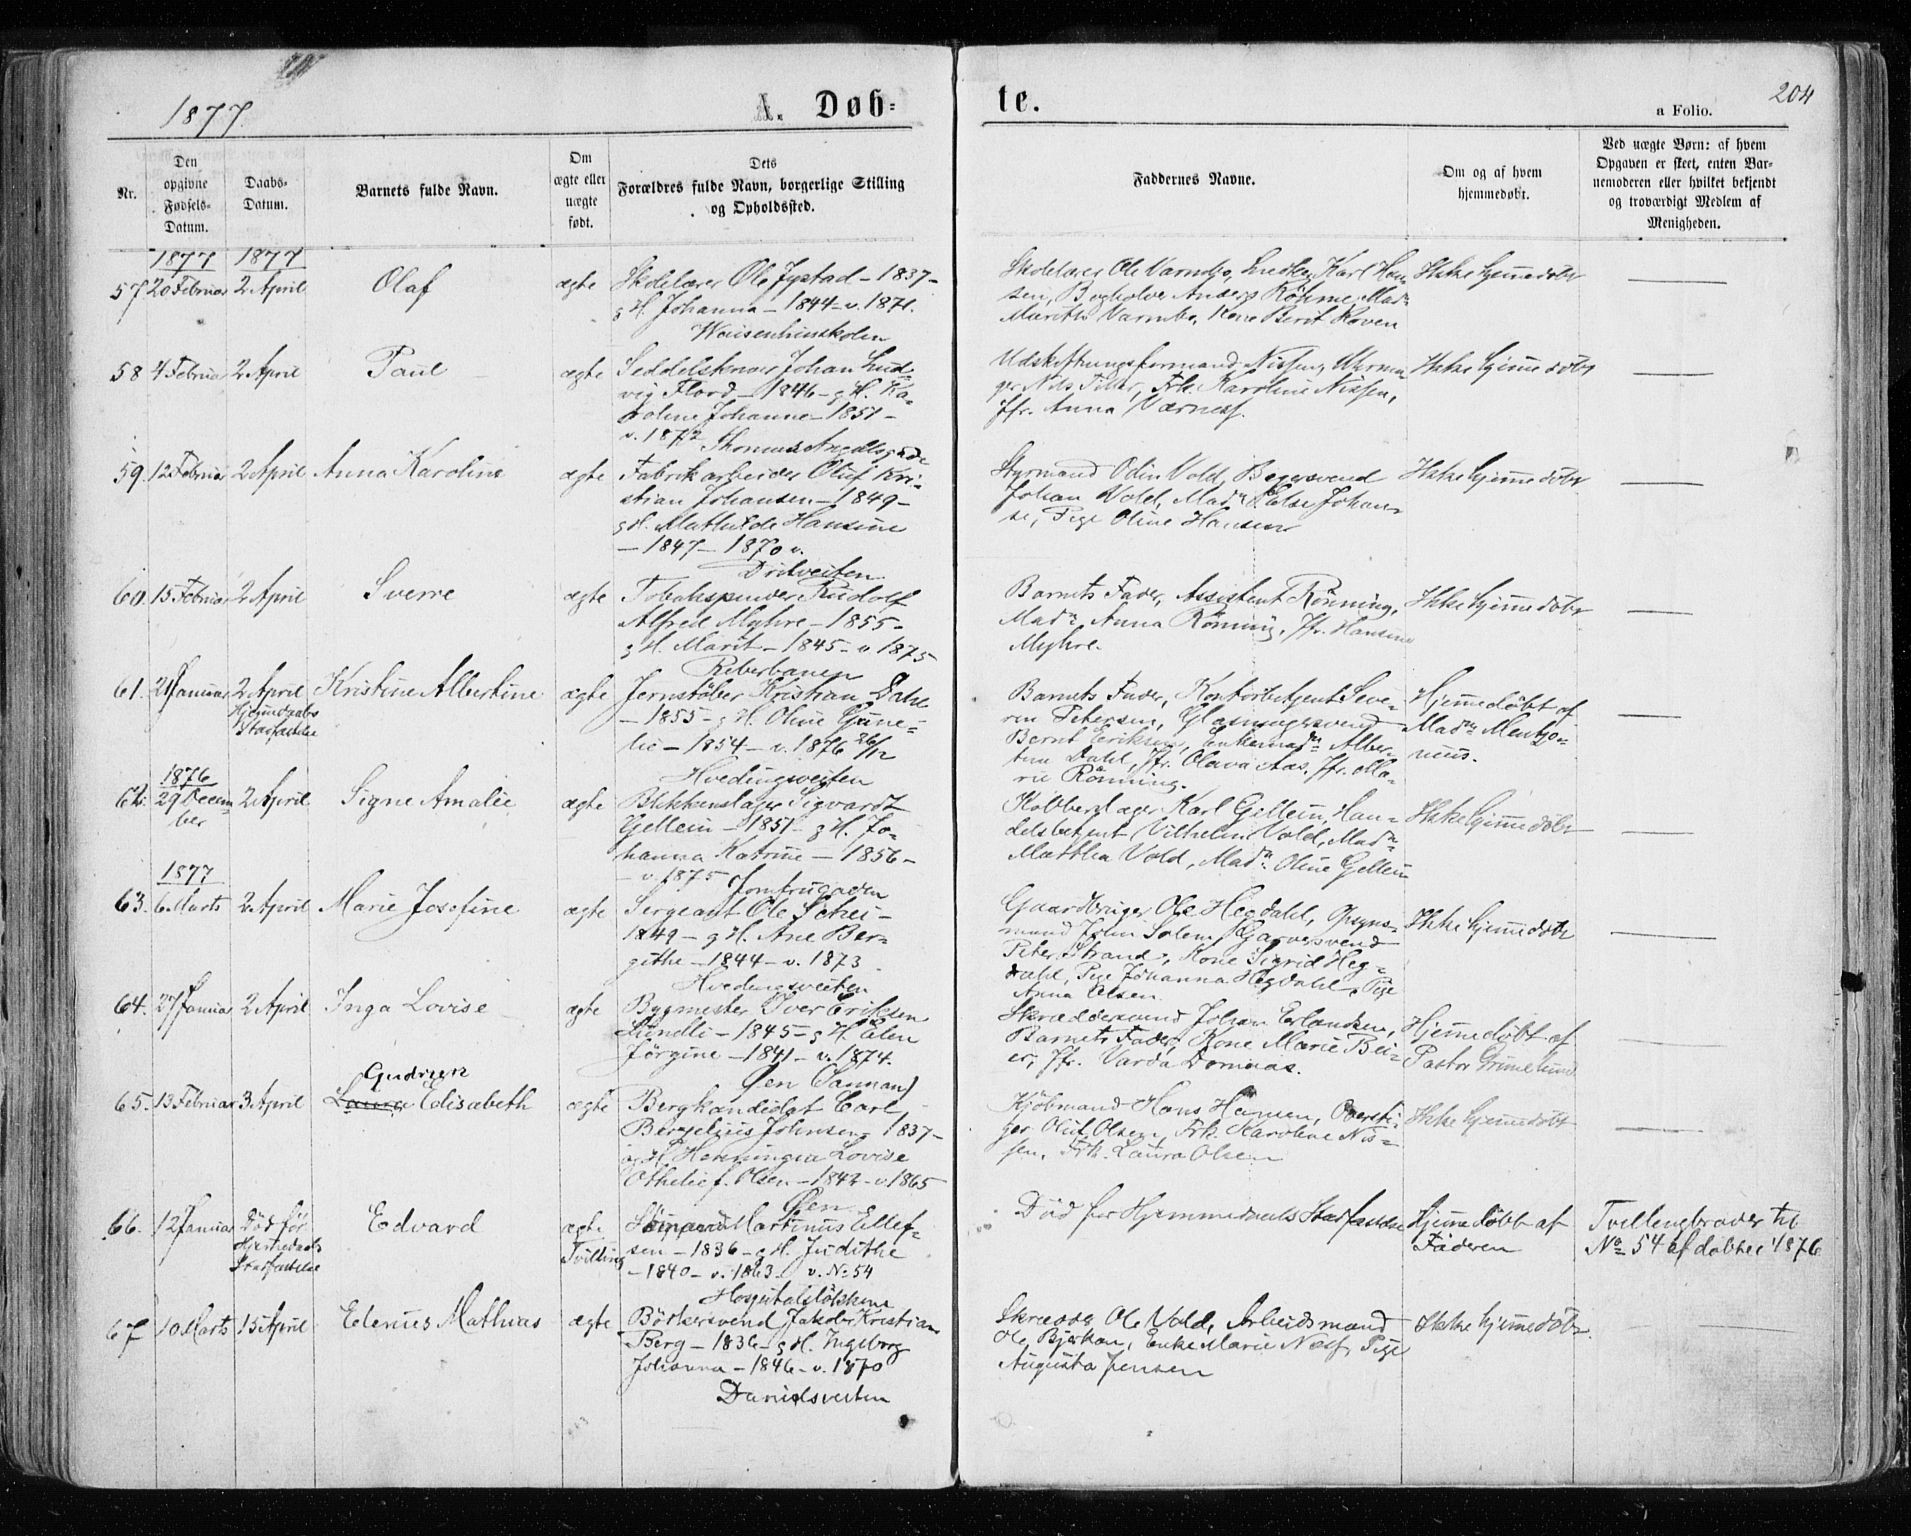 1877.
A. Døb-
te.
204
a Folio.
Nr.
Den opgivne Fødsels-Datum.
Daabs-Datum.
Barnets fulde Navn.
Om ægte eller uægte født.
Dets Forældres fulde Navn, borgerlige Stilling og Opholdssted.
Faddernes Navne.
Om og af hvem hjemmedøbt.
Ved uægte Børn: af hvem Opgaven er skeet, enten Barnemoderen eller hvilket bekjendt og troværdigt Medlem af Menigheden.
1877 1877
57 20 Februar 2 April Olaf ægte
Skolelærer Ole Jystad - 1837 -
g H. Johanna - 1844 - v. 1871.
Waisenhuusskolen
Skolelærer Ole Varmbo, Karl Han-
sen, Bogholder Anders Röhme, Madm
Marith Varmbo, Kone Berit Koven
Ikke hjemmedöbt
58 4 Februar 2 April Paul ægte
Johan Lud-
vig Flord - 1846 - g H. Ka-
roline Johanne - 1851 -
v. 1872 Thomas Angells gade
Udskiftningsformand Nissen,
ger Nils Tiller, Frk. Karoline Nissen,
Jfr. Anna Værness.
Ikke hjemmedöbt
59. 12 Februar 2 April Anna Karoline ægte
Fabrikarbeider Oluf Kri-
stian Johansen - 1849 -
g H. Mathilde Hansine
- 1847 - 1870 v.
Dritveiten
Styrmand Odin Vold, Bagersvend
Johan Vold, Madm Else Johan-
se, Pige Oline Hansen
Ikke hjemmedöbt
60. 15 Februar 2 April Sverre ægte
Tobakspinder Rudolf
Alfred Myhre - 1855 -
g H. Marit - 1845 - v 1875
Reberbanen
Barnets Fader, Assistent Rönning,
Madm Anna Rönning, Jfr. Hansine
Myhre.
Ikke hjemmedöbt
61. 21 Januar 2 April Kristine Albertine ægte
Hjemmedaabs
Stadfæstelse
Jernstöber Kristian Dahl
- 1855 - g H. Oline Gune-
lie - 1854 - v. 1876 26/12
Hvedingsveiten
Barnets Fader, Kontorbetjent Seve-
rin Petersen, Glasmagersvend
Bernt Eriksen, Enkemadm Alber-
tine Dahl, Jfr. Olava Aas, Jfr. Ma-
rie Rönning.
Hjemmedöbt af
Madm Mentzo-
nius.
1876
62. 29 Decem-
ber 2 April Signe Amalie ægte
Blikkenslager Sigvardt
Gellein - 1851 - g H. Jo-
hanna Katrine - 1856 -
- v. 1875 Jomfrugaden
Kobberslager Karl Gellein, Han-
delsbetjent Vilhelm Vold, Madm
Matthea Vold, Madm Oline Gellein
Ikke hjemmedöbt
1877
63. 6 Marts 2 April Marie Josefine ægte
Sergeant Ole Schei -
1849 - g H. Ane Ber-
githe - 1844 - v. 1873
Hvedingsveiten
Gaardbruger Ole Hegdahl, Opsyns-
mand John Solem, Garversvend
Peter Strand, Kone Sigrid Heg-
dahl, Pige Johanna Hegdahl, Pige
Anna Olsen.
Ikke hjemmedöbt
64. 27 Januar 2 April Inga Lovise ægte
Bygmester Iver Eriksen
Lundli - 1845 - g H. Elen
Jörgine - 1841 - v. 1874.
Öen
Skræddersvend Johan Erlandsen,
Barnets Fader, Kone Marie Bei-
er, Jfr. Varda Domaas.
Hjemmedöbt af
Pastor Grimelund
Gudrun
65. 13 Februar 3 April Laura Elisabeth ægte
Bergkandidat Carl
Berzelius Johnsen - 1837 -
og H. Henningia Lovise
Othelie f. Olsen - 1842 - v 1865
Öen
Kjöbmand Hans Hansen, Oversti-
ger Oluf Olsen, Frk. Karoline Nis-
sen, Frk. Laura Olsen
Ikke hjemmedöbt
66. 12 Januar Död för
Hjemmedaabs
Stadfæstelse
Edvard ægte
Tvilling
Sömand Martinus Ellef-
sen - 1836 - g H. Judithe
- 1840 - v. 1863. v. No 54
Hospitalslökkene
Död för Hjemmedaabs Stadfæstelse
Hjemmedöbt af
Faderen
Tvillingbroder til
No 54 af döbte i 1876
67 10 Marts 15 April Edenius Mathias ægte
Bödkersvend Jakob Kristian
Berg - 1836 - g H. Ingeborg
Johanna - 1846 - v. 1870
Danielsveiten
Skrædder Ole Vold, Arbeidsmand
Ole Bjerkan, Enke Marie Næss, Pige
Augusta Jensen
Ikke hjemmedöbt.